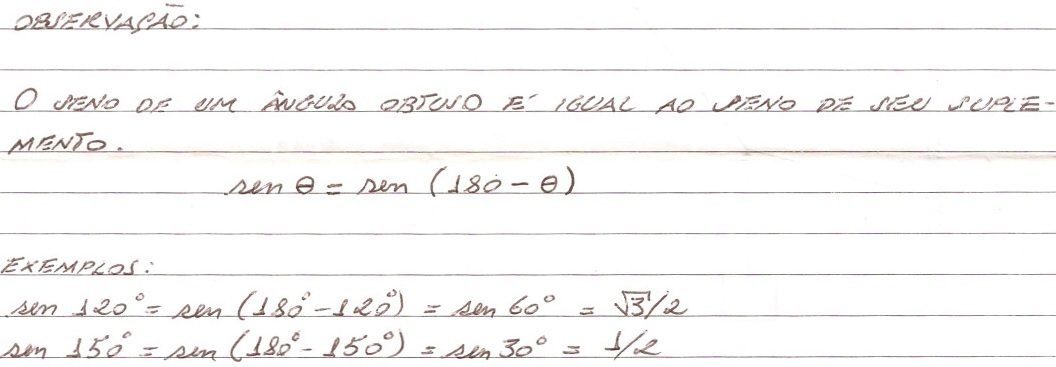 OBSERVAÇÃO:
O SENO DE UM ÂNGULO OBTUSO É IGUAL AO SENO DE SEU SUPLE-
MENTO.
sen θ = sen (180 - θ)
EXEMPLOS:
sen 120° = sen (180° - 120°) = sen 60° = √3/2
sen 150° = sen (180° - 150°) = sen 30° = 1/2